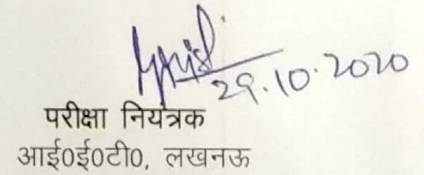 29.10.2020
परीक्षा नियंत्रक
आई0ई0टी0, लखनऊ